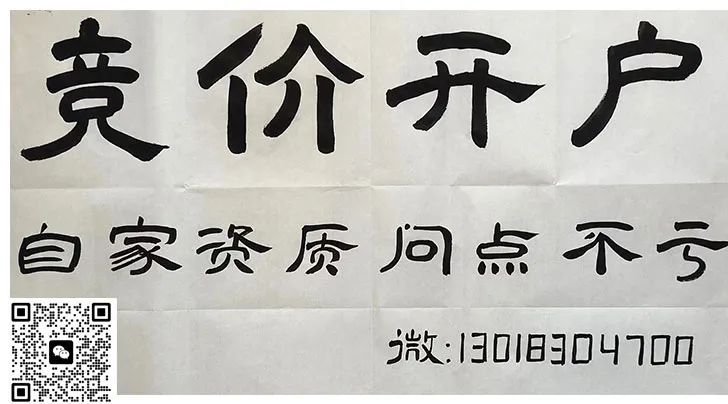 竞价开户
自家资质问点不亏
微:13018304700